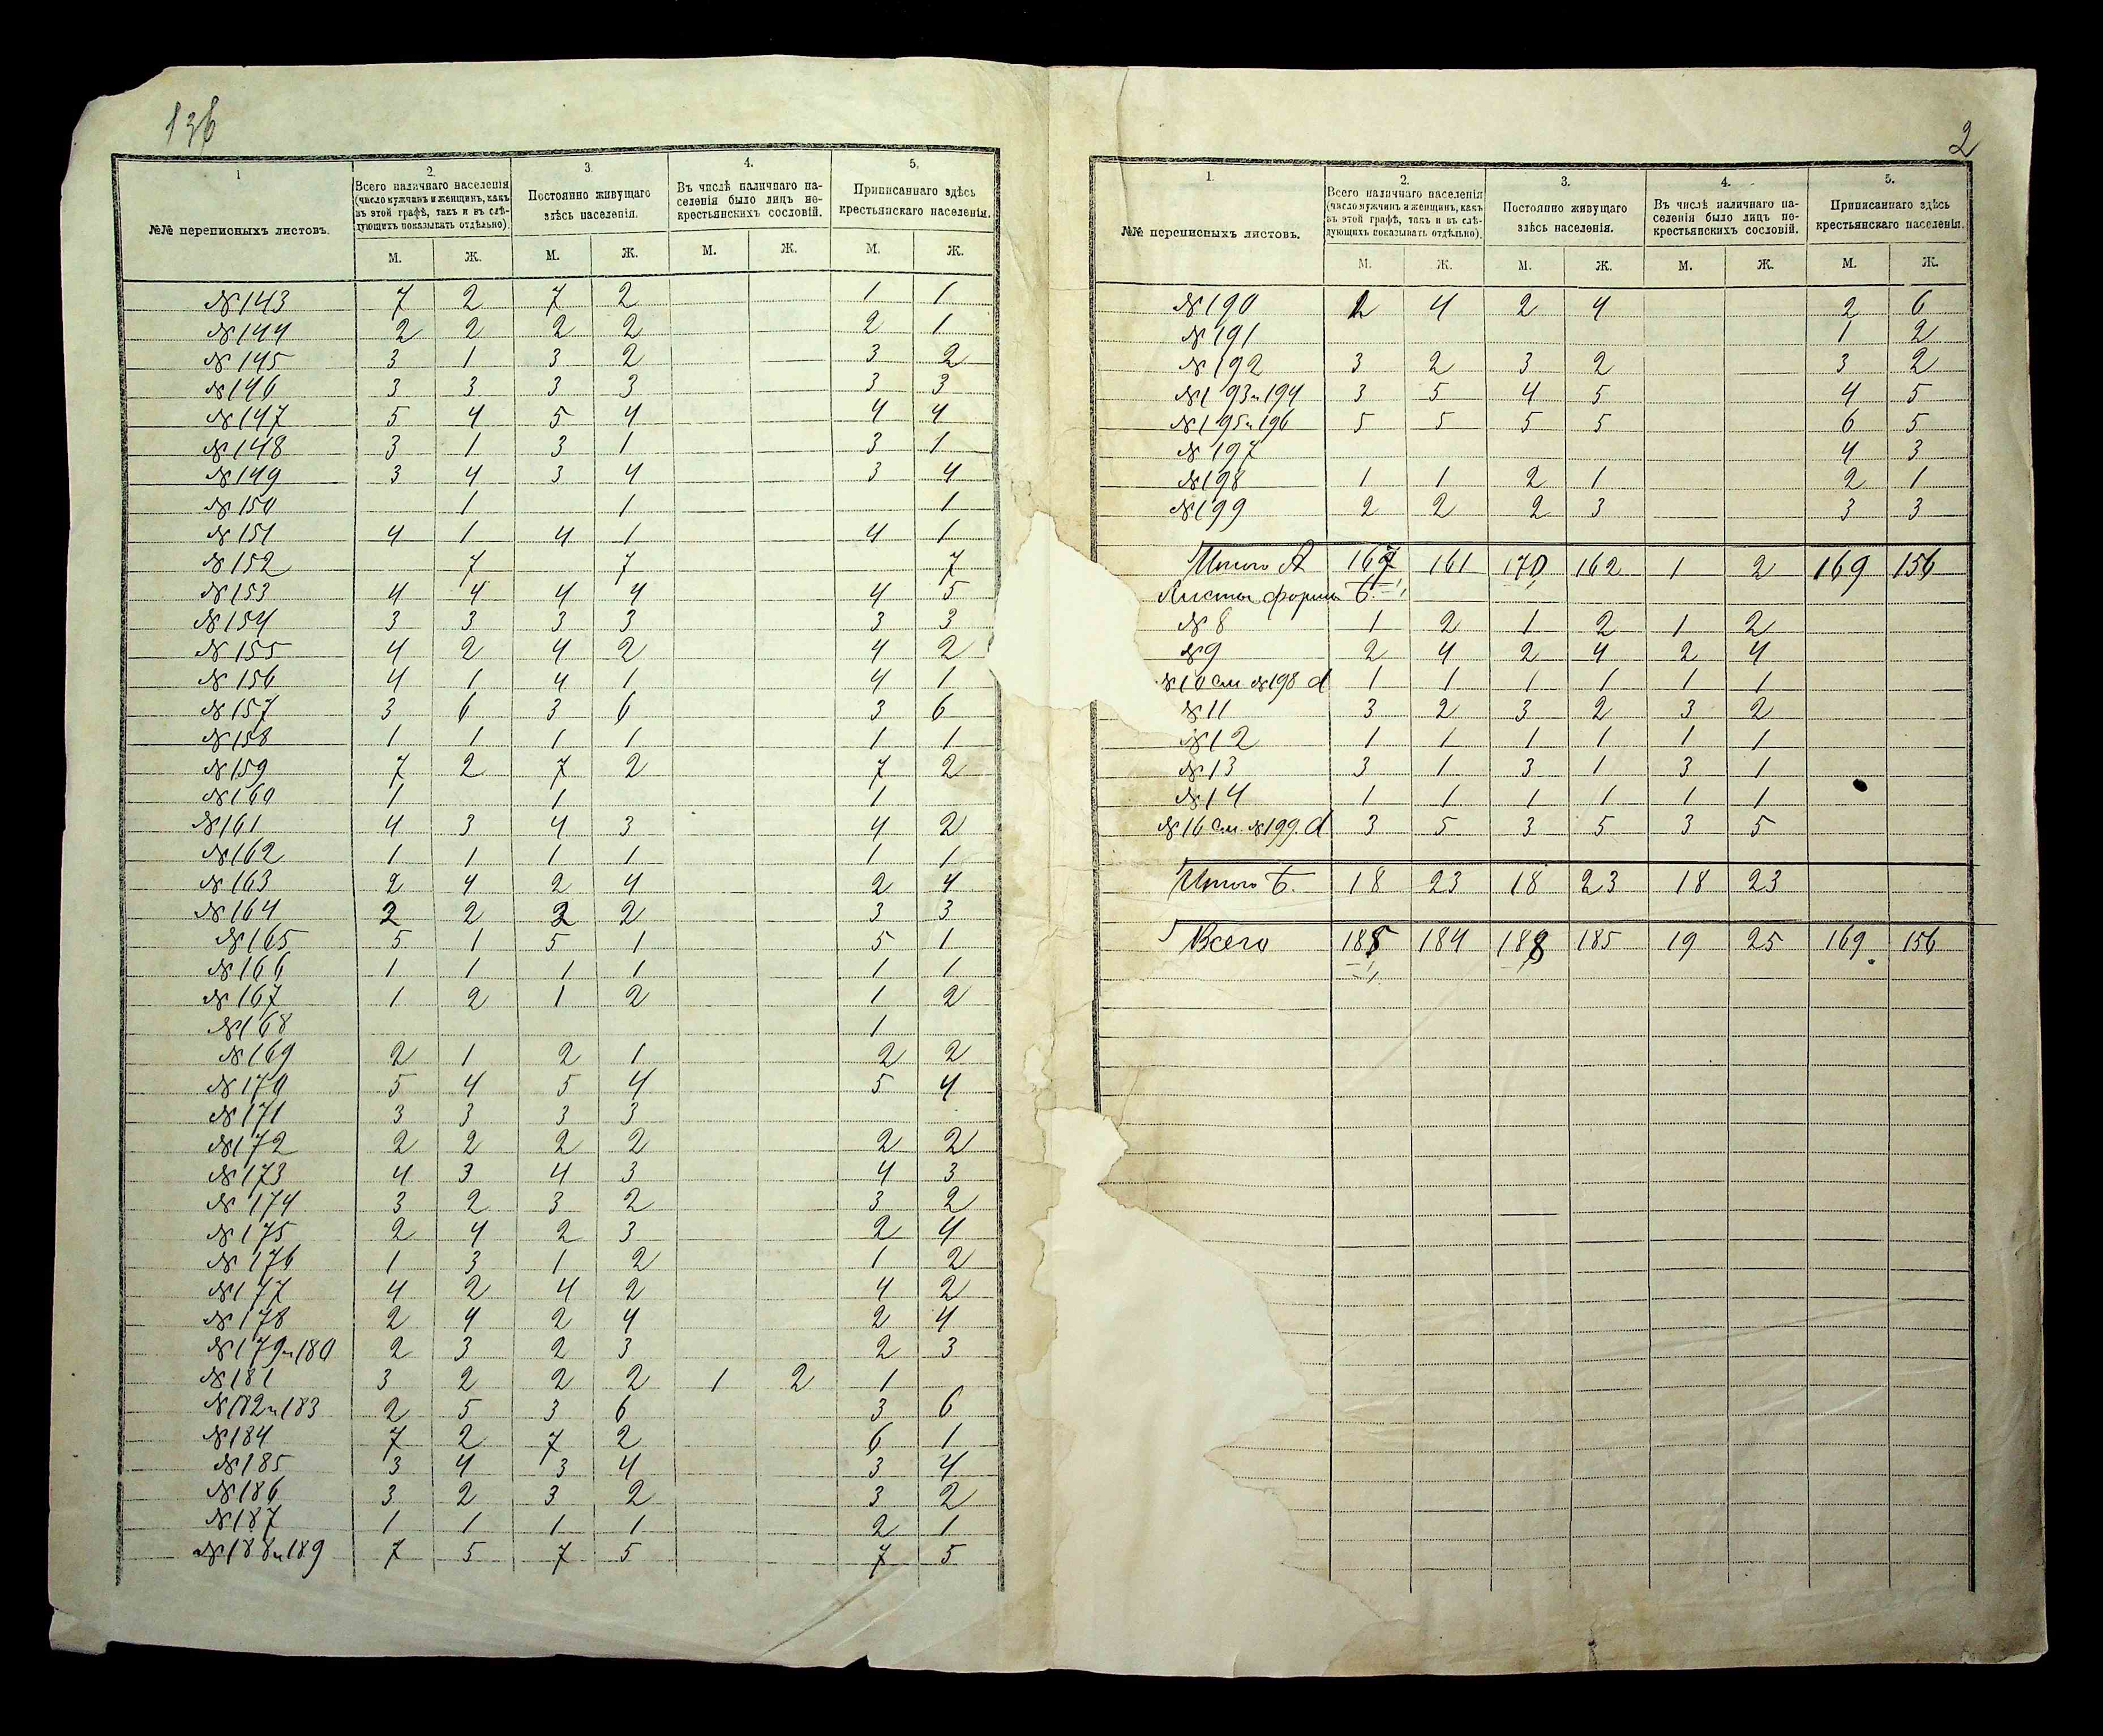 136
1
2.
3.
4.
5.
№№ переписныхъ листовъ.
Всего наличнаго населенія (число мужчинъ и женщинъ, какъ въ этой графѣ, такъ и въ слѣдующихъ показывать отдѣльно).
Постоянно живущаго здѣсь населенія.
Въ числѣ наличнаго населенія было лицъ некрестьянскихъ сословій.
Приписаннаго здѣсь крестьянскаго населенія.
М. Ж. М. Ж. М. Ж. М. Ж.
№ 143 7 2 7 2 1 1
№ 144 2 2 2 2 2 1
№ 145 3 1 3 2 3 2
№ 146 3 3 3 3 3 3
№ 147 5 4 5 4 4 4
№ 148 3 1 3 1 3 1
№ 149 3 4 3 4 3 4
№ 150 1 1 1
№ 151 4 1 4 1 4 1
№ 152 7 7 7
№ 153 4 4 4 4 4 5
№ 154 3 3 3 3 3 3
№ 155 4 2 4 2 4 2
№ 156 4 1 4 1 4 1
№ 157 3 6 3 6 3 6
№ 158 1 1 1 1 1 1
№ 159 7 2 7 2 7 2
№ 160 1 1 1
№ 161 4 3 4 3 4 2
№ 162 1 1 1 1 1 1
№ 163 2 4 2 4 2 4
№ 164 2 2 2 2 3 3
№ 165 5 1 5 1 5 1
№ 166 1 1 1 1 1 1
№ 167 1 2 1 2 1 2
№ 168 1
№ 169 2 1 2 1 2 2
№ 170 5 4 5 4 5 4
№ 171 3 3 3 3
№ 172 2 2 2 2 2 2
№ 173 4 3 4 3 4 3
№ 174 3 2 3 2 3 2
№ 175 2 4 2 3 2 4
№ 176 1 3 1 2 1 2
№ 177 4 2 4 2 4 2
№ 178 2 4 2 4 2 4
№ 179 и 180 2 3 2 3 2 3
№ 181 3 2 2 2 1 2 1
№ 182 и 183 2 5 3 6 3 6
№ 184 7 2 7 2 6 1
№ 185 3 4 3 4 3 4
№ 186 3 2 3 2 3 2
№ 187 1 1 1 1 2 1
№ 188 и 189 7 5 7 5 7 5
2
1.
2.
3.
4.
5.
№№ переписныхъ листовъ.
Всего наличнаго населенія (число мужчинъ и женщинъ, какъ въ этой графѣ, такъ и въ слѣдующихъ показывать отдѣльно).
Постоянно живущаго здѣсь населенія.
Въ числѣ наличнаго населенія было лицъ некрестьянскихъ сословій.
Приписаннаго здѣсь крестьянскаго населенія.
М. Ж. М. Ж. М. Ж. М. Ж.
№ 190 2 4 2 4 2 6
№ 191 1 2
№ 192 3 2 3 2 3 2
№ 193 и 194 3 5 4 5 4 5
№ 195 и 196 5 5 5 5 6 5
№ 197 4 3
№ 198 1 1 2 1 2 1
№ 199 2 2 2 3 3 3
Итого А 167 161 170 162 1 2 169 156
Листы формы Б.
№ 8 1 2 1 2 1 2
№ 9 2 4 2 4 2 4
№ 10 см. № 198 d 1 1 1 1 1 1
№ 11 3 2 3 2 3 2
№ 12 1 1 1 1 1 1
№ 13 3 1 3 1 3 1
№ 14 1 1 1 1 1 1
№ 16 см. № 199 d 3 5 3 5 3 5
Итого Б. 18 23 18 23 18 23
Всего 185 184 188 185 19 25 169 156